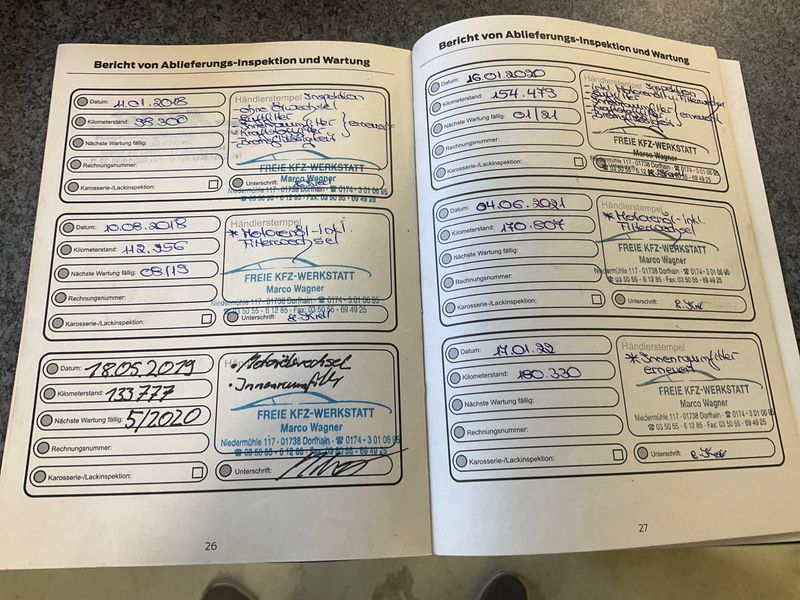 Bericht von Ablieferungs-Inspektion und Wartung
Datum: 11.01.2018
Kilometerstand: 98.300
Nächste Wartung fällig:
Rechnungsnummer:
Karosserie-/Lackinspektion:
Händlerstempel Inspektion
- ohne Ölwechsel
- Luftfilter
- Innenraumfilter } erneuert
- Kraftstofffilter
- Bremsflüssigkeit
FREIE KFZ-WERKSTATT
Marco Wagner
Niedermühle 117 · 01738 Dorfhain · ☎ 0174 - 3 01 06 95
☎ 03 50 55 - 6 12 85 · Fax: 03 50 55 - 69 49 25
Unterschrift:
Datum: 10.08.2018
Kilometerstand: 112.956
Nächste Wartung fällig: 08/19
Rechnungsnummer:
Karosserie-/Lackinspektion:
Händlerstempel
* Motorenöl - Inkl.
Filterwechsel
FREIE KFZ-WERKSTATT
Marco Wagner
Niedermühle 117 · 01738 Dorfhain · ☎ 0174 - 3 01 06 95
☎ 03 50 55 - 6 12 85 · Fax: 03 50 55 - 69 49 25
Unterschrift:
Datum: 18.05.2019
Kilometerstand: 133.777
Nächste Wartung fällig: 5/2020
Rechnungsnummer:
Karosserie-/Lackinspektion:
• Motorölwechsel
• Innenraumfilter
FREIE KFZ-WERKSTATT
Marco Wagner
Niedermühle 117 · 01738 Dorfhain · ☎ 0174 - 3 01 06 95
☎ 03 50 55 - 6 12 85 · Fax: 03 50 55 - 69 49 25
Unterschrift:
26
Bericht von Ablieferungs-Inspektion und Wartung
Datum: 16.01.2020
Kilometerstand: 154.479
Nächste Wartung fällig: 01/21
Rechnungsnummer:
Karosserie-/Lackinspektion:
Händlerstempel Inspektion
- inkl. Motorenöl u. Filterwechsel
- Luftfilter
- Innenraumfilter } erneuert
- Bremsflüssigkeit
FREIE KFZ-WERKSTATT
Marco Wagner
Niedermühle 117 · 01738 Dorfhain · ☎ 0174 - 3 01 06 95
☎ 03 50 55 - 6 12 85 · Fax: 03 50 55 - 69 49 25
Datum: 04.06.2021
Kilometerstand: 170.807
Nächste Wartung fällig:
Rechnungsnummer:
Karosserie-/Lackinspektion:
Händlerstempel
* Motorenöl - Inkl.
Filterwechsel
FREIE KFZ-WERKSTATT
Marco Wagner
Niedermühle 117 · 01738 Dorfhain · ☎ 0174 - 3 01 06 95
☎ 03 50 55 - 6 12 85 · Fax: 03 50 55 - 69 49 25
Unterschrift:
Datum: 17.01.22
Kilometerstand: 180.330
Nächste Wartung fällig:
Rechnungsnummer:
Karosserie-/Lackinspektion:
Händlerstempel
* Innenraumfilter
erneuert
FREIE KFZ-WERKSTATT
Marco Wagner
Niedermühle 117 · 01738 Dorfhain · ☎ 0174 - 3 01 06 95
☎ 03 50 55 - 6 12 85 · Fax: 03 50 55 - 69 49 25
Unterschrift:
27